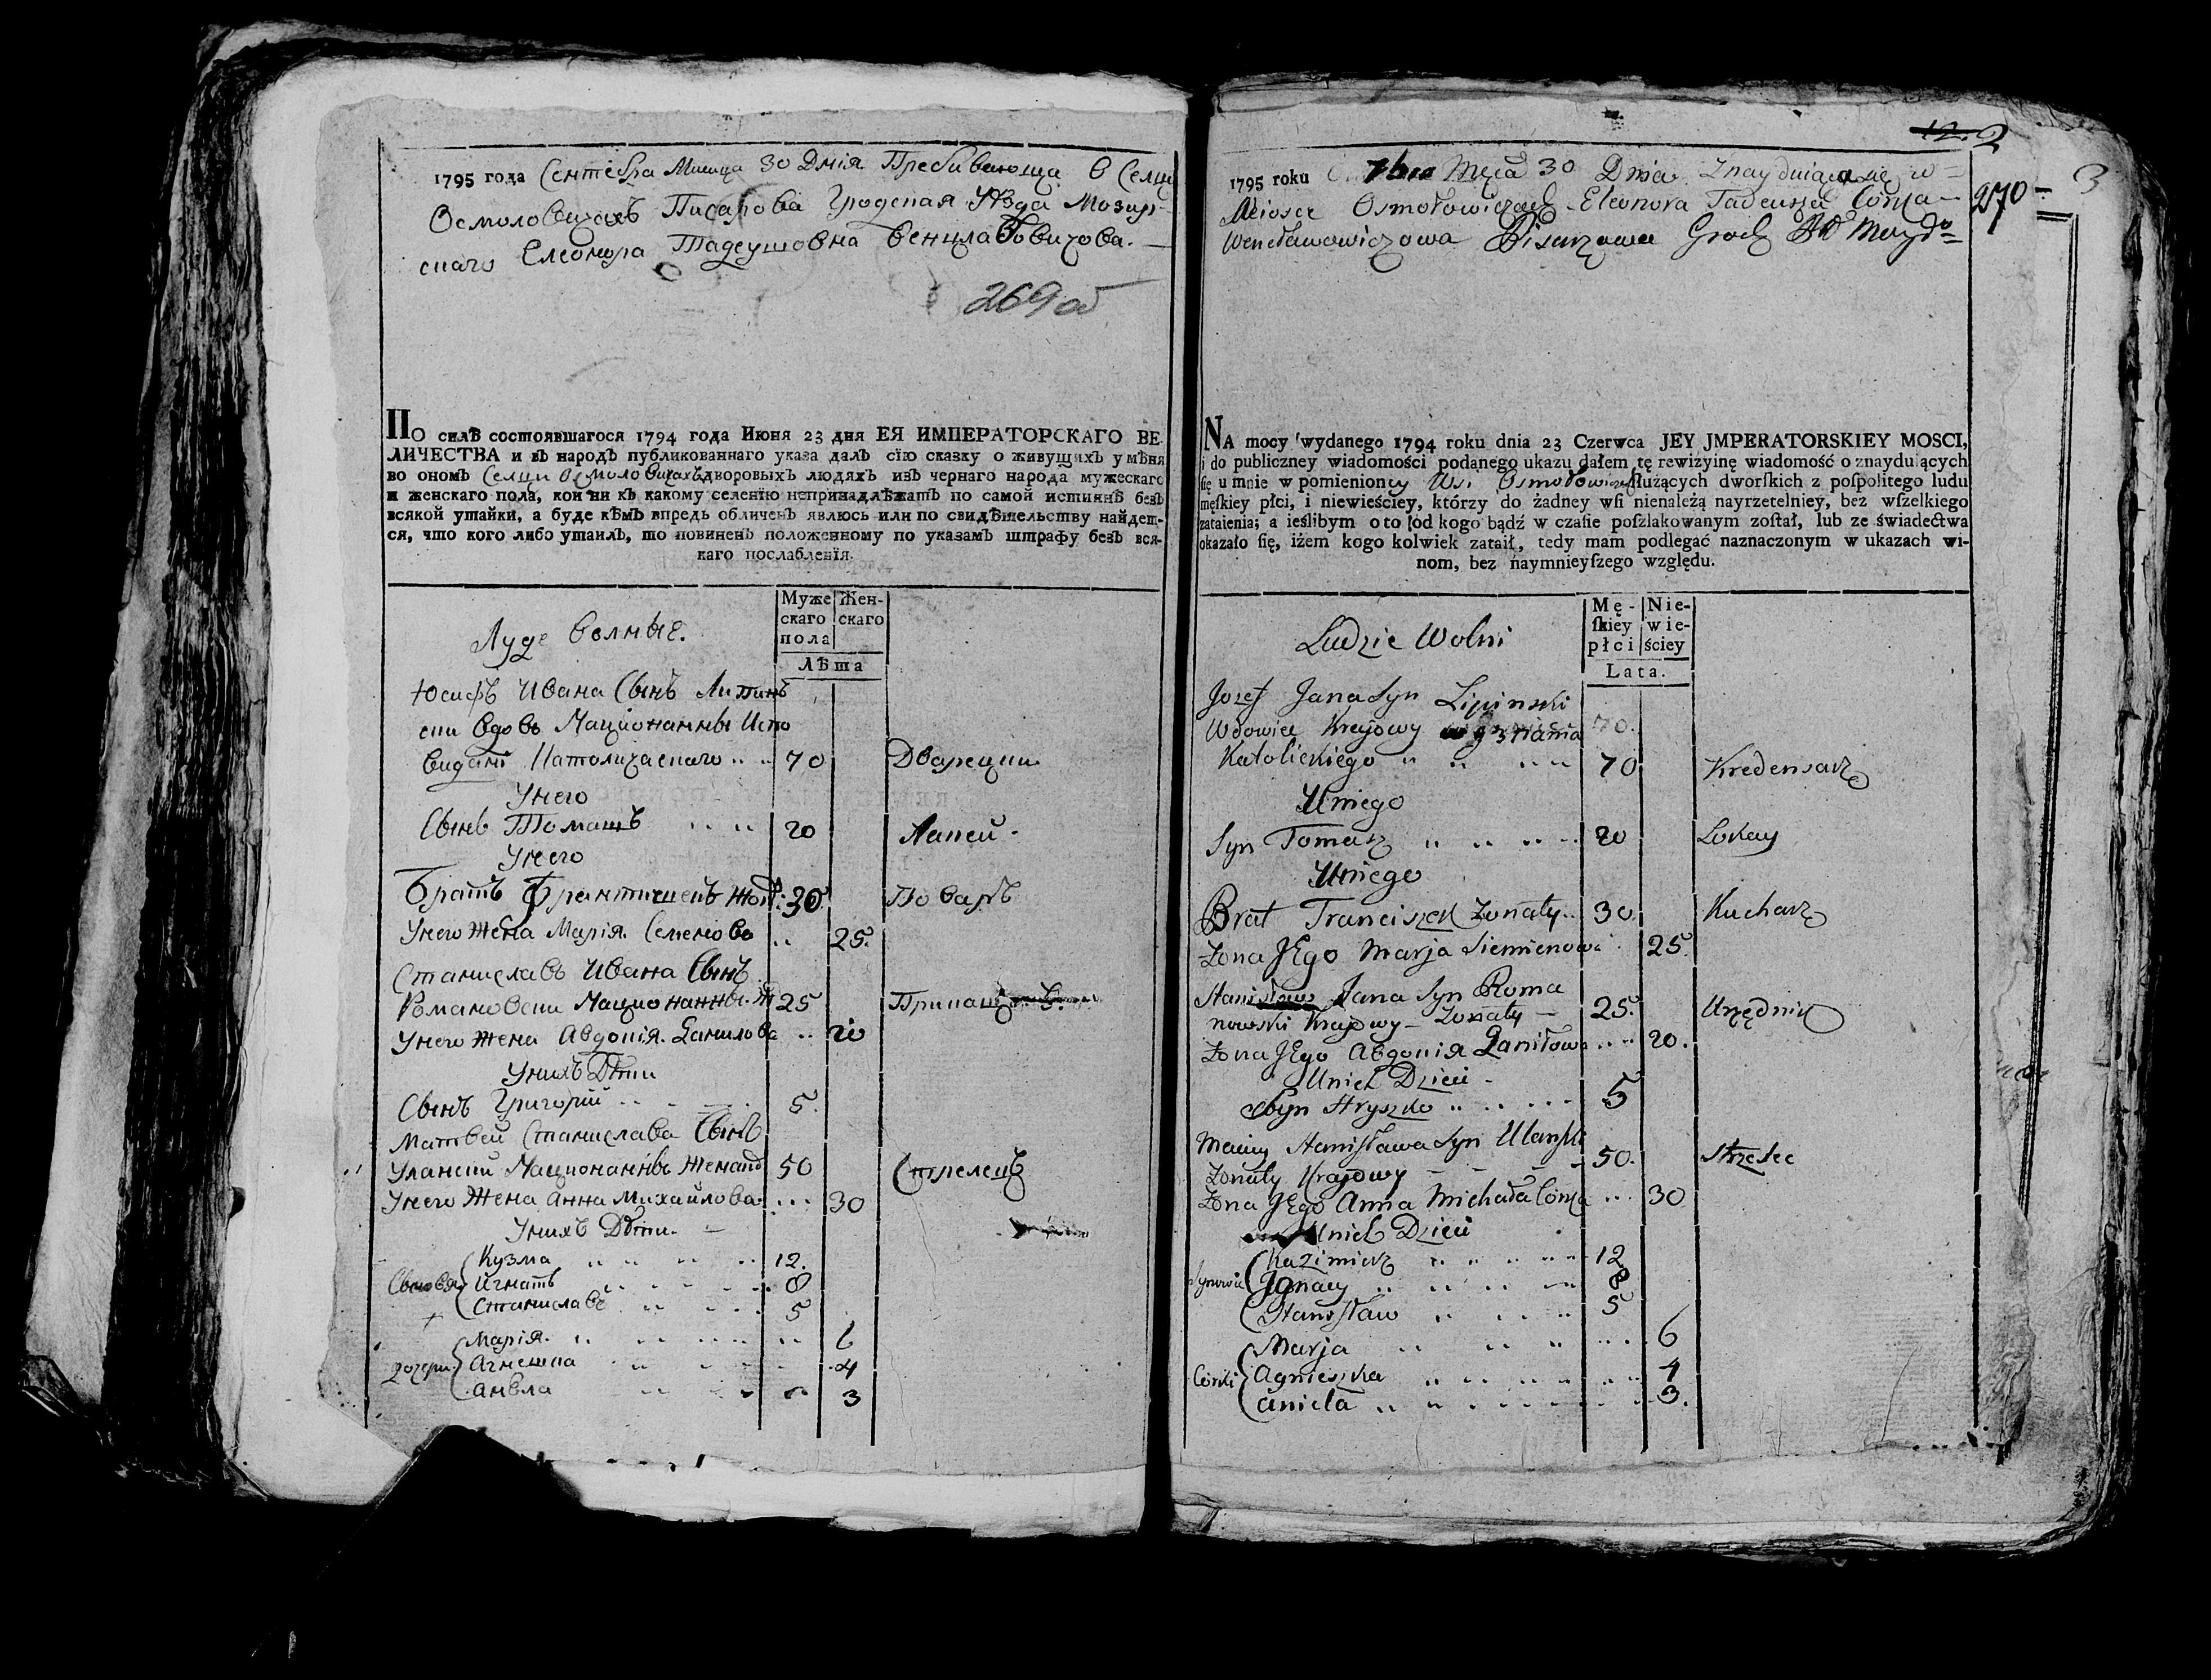 1795 года Сентебра Мисица 30 Дния Пребивающа в Селци
Осмоловичахъ Писарова Гродская Уѣзда Мозир-
скаго Елеонора Тадеушовна Венцлавовичова.
269об
По силѣ состоявшагося 1794 года Июня 23 дня ЕЯ ИМПЕРАТОРСКАГО ВЕ-
ЛИЧЕСТВА и въ народъ публикованнаго указа далъ сїю сказку о живущихъ у мѣня
во ономъ Селци Осмоловичахъ дворовыхъ людяхъ изъ чернаго народа мужескаго
и женскаго пола, кои ни къ какому селенїю непринадлѣжатъ по самой истиннѣ безъ
всякой утайки, а буде кѣмъ впредь обличенъ явлюсь или по свидѣтельству найдет-
ся, что кого либо утаилъ, то повиненъ положенному по указамъ штрафу безъ вся-
каго послабленїя.
Муже Жен-
скаго скаго
пола
Лѣта
Луде Волные.
Юсифъ Ивана Сынъ Липинъ
ски вдовъ Национанны Испо
виданї Католическаго 70 Дварецки
Унего
Сынъ Томашъ 20 Лакей
Унего
Братъ Франтишекъ 30 Поваръ
Унего Жена Марїя Семенова 25.
Станиславъ Ивана Сынъ
Романовски Национанны 25
Унего Жена Авдокїя Данилова 20
Унихъ Дѣти
Сынъ Григорїй 5.
Матвей Станислава Сынъ
Уланскїй Национаннъ Женатъ 50 Стрелецъ
Унего Жена Анна Михайлова 30
Унихъ Дѣти.
Кузма 12.
Сыновя Игнатъ 8
Станиславъ 5
Марїя 6
дочери Агнешка 4
Анѣла 3
12. 2
270 3
1795 roku 7bra Męca 30 Dnia Znayduiąca się w
Mieyscu Osmołowiczach Eleonora Tadeusza Corka
Wencławowiczowa Pisarzowa Grodz
NA mocy wydanego 1794 roku dnia 23 Czerwca JEY JMPERATORSKIEY MOSCI,
i do publiczney wiadomości podanego ukazu dałem tę rewizyinę wiadomość o znayduiących
ſię u mnie w pomienioney Wsi Osmołowiczach służących dworſkich z poſpolitego ludu
męſkiey płci, i niewieściey, którzy do żadney wſi nienależą nayrzetelniey, bez wſzelkiego
zataienia; a ieślibym o to od kogo bądź w czaſie poſzlakowanym zoſtał, lub ze świadectwa
okazało ſię, iżem kogo kolwiek zataił, tedy mam podlegać naznaczonym w ukazach wi-
nom, bez naymnieyſzego względu.
Mę- Nie-
ſkiey wie-
płci ściey
Lata.
Ludzie Wolni
Jozef Jana Syn Lipinski
Wdowiec Krajowy 70.
Katolickiego 70 Kredensarz
Uniego
Syn Tomasz 20 Lokay
Uniego
Brat Franciszek Zonaty 30 Kucharz
Zona JEgo Marja Siemienowa 25
Stanisław Jana Syn Roma
nowski Krajowy – Zonaty – 25. Urzędnik
Zona JEgo Авдокія Daniłowa 20.
Unich Dzieci
Syn Hryszko 5
Maciey Stanisława Syn Ulanski
Zonaty Krajowy 50. Strzelec
Zona JEgo Anna Michała Corka 30
Unich Dzieci
Kazimierz 12
Synowie Jgnacy 8
Stanisław 5
Marja 6
Corki Agnieszka 4
Aniela 3.